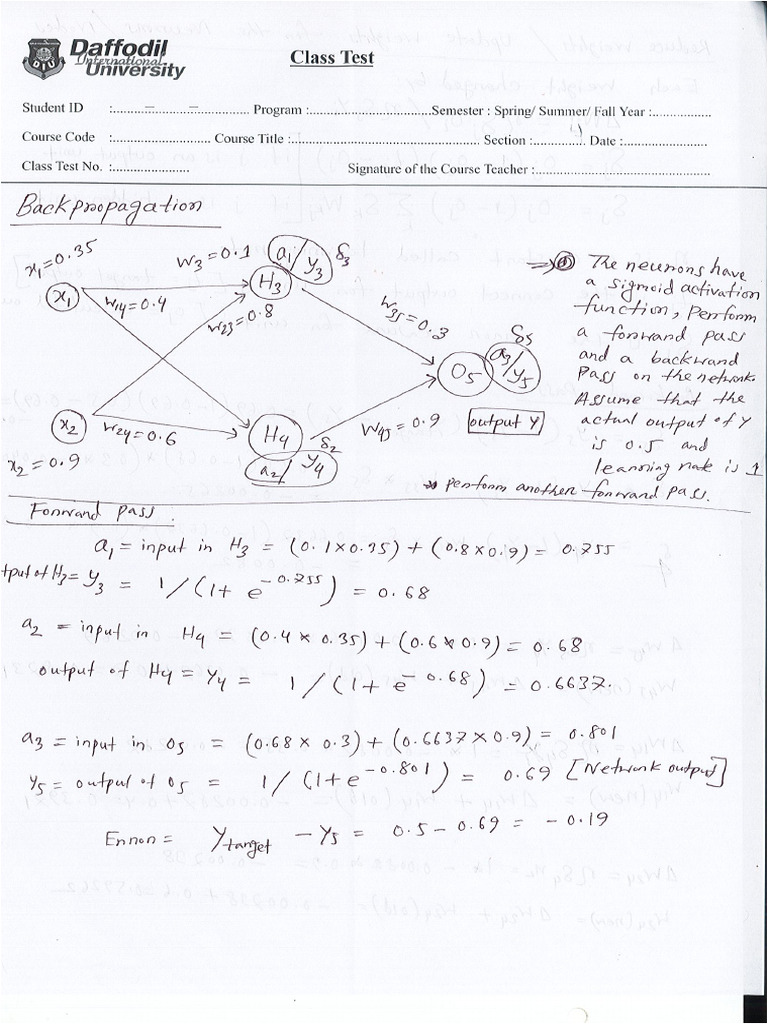 Daffodil
International
University
DIU
Class Test
Student ID :............–............–............ Program :.................................... Semester : Spring/ Summer/ Fall Year :..................
Course Code :............................ Course Title :.................................................... Section :.............. Date :........................
Class Test No. :.....................
Signature of the Course Teacher :................................................
Backpropagation
x1=0.35
W3=0.1
a1/y3
δ3
x1
W14=0.4
H3
W23=0.8
W35=0.3
δ5
a3/y5
O5
x2
W24=0.6
H4
δ2
a2/y4
W45=0.9
output Y
x2=0.9
⇒ The neurons have
a sigmoid activation
function, Perform
a forward pass
and a backward
Pass on the network
Assume that the
actual output of Y
is 0.5 and
learning rate is 1
perform another forward pass.
Forward pass.
a1 = input in H3 = (0.1×0.35) + (0.8×0.9) = 0.755
tput of H3 = y3 = 1/(1+ e^-0.755) = 0.68
a2 = input in H4 = (0.4 × 0.35) + (0.6 × 0.9) = 0.68
output of H4 = y4 = 1/(1+e^-0.68) = 0.6637.
a3 = input in O5 = (0.68 × 0.3) + (0.6637 × 0.9) = 0.801
y5 = output of O5 = 1/(1+e^-0.801) = 0.69 [Network output]
Error = ytarget - y5 = 0.5 - 0.69 = - 0.19